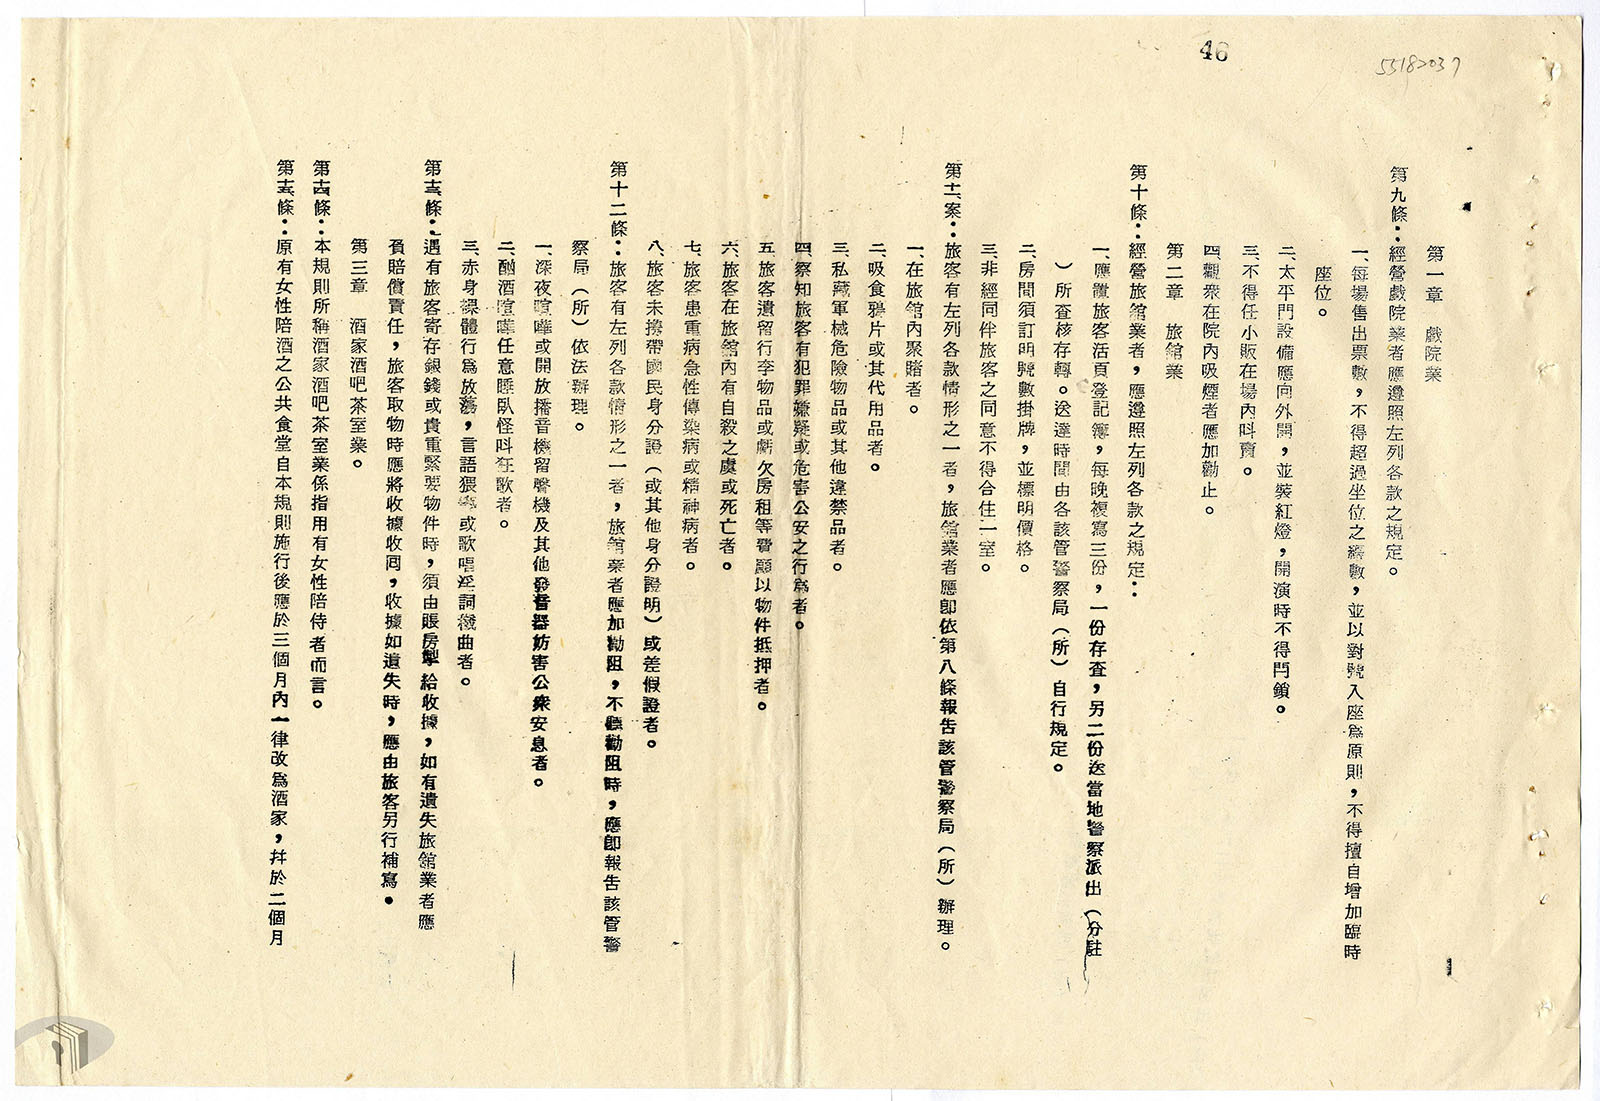 46
55182037
第一章　戲院業
第九條：經營戲院業者應遵照左列各款之規定。
一、每場售出票數，不得超過坐位之總數，並以對號入座爲原則，不得擅自增加臨時
座位。
二、太平門設備應向外開，並裝紅燈，開演時不得閂鎖。
三、不得任小販在場內叫賣。
四、觀衆在院內吸煙者應加勸止。
第二章　旅館業
第十條：經營旅館業者，應遵照左列各款之規定：
一、應置旅客活頁登記簿，每晚複寫三份，一份存查，另二份送當地警察派出（分駐
）所查核存轉。送達時間由各該管警察局（所）自行規定。
二、房間須訂明號數掛牌，並標明價格。
三、非經同伴旅客之同意不得合住一室。
第十一案：旅客有左列各款情形之一者，旅館業者應卽依第八條報告該管警察局（所）辦理。
一、在旅館內聚賭者。
二、吸食鴉片或其代用品者。
三、私藏軍械危險物品或其他違禁品者。
四、察知旅客有犯罪嫌疑或危害公安之行爲者。
五、旅客遺留行李物品或虧欠房租等費願以物件抵押者。
六、旅客在旅館內有自殺之虞或死亡者。
七、旅客患重病急性傳染病或精神病者。
八、旅客未攜帶國民身分證（或其他身分證明）或差假證者。
第十二條：旅客有左列各款情形之一者，旅館業者應加勸阻，不聽勸阻時，應卽報告該管警
察局（所）依法辦理。
一、深夜喧嘩或開放播音機留聲機及其他發音器妨害公衆安息者。
二、酗酒喧嘩任意睡臥怪叫狂歌者。
三、赤身裸體行爲放蕩，言語猥褻或歌唱淫詞穢曲者。
第十三條：遇有旅客寄存銀錢或貴重緊要物件時，須由賬房掣給收據，如有遺失旅館業者應
負賠償責任，旅客取物時應將收據收囘，收據如遺失時，應由旅客另行補寫。
第三章　酒家酒吧茶室業。
第十四條：本規則所稱酒家酒吧茶室業係指用有女性陪侍者而言。
第十五條：原有女性陪酒之公共食堂自本規則施行後應於三個月內一律改爲酒家，并於二個月